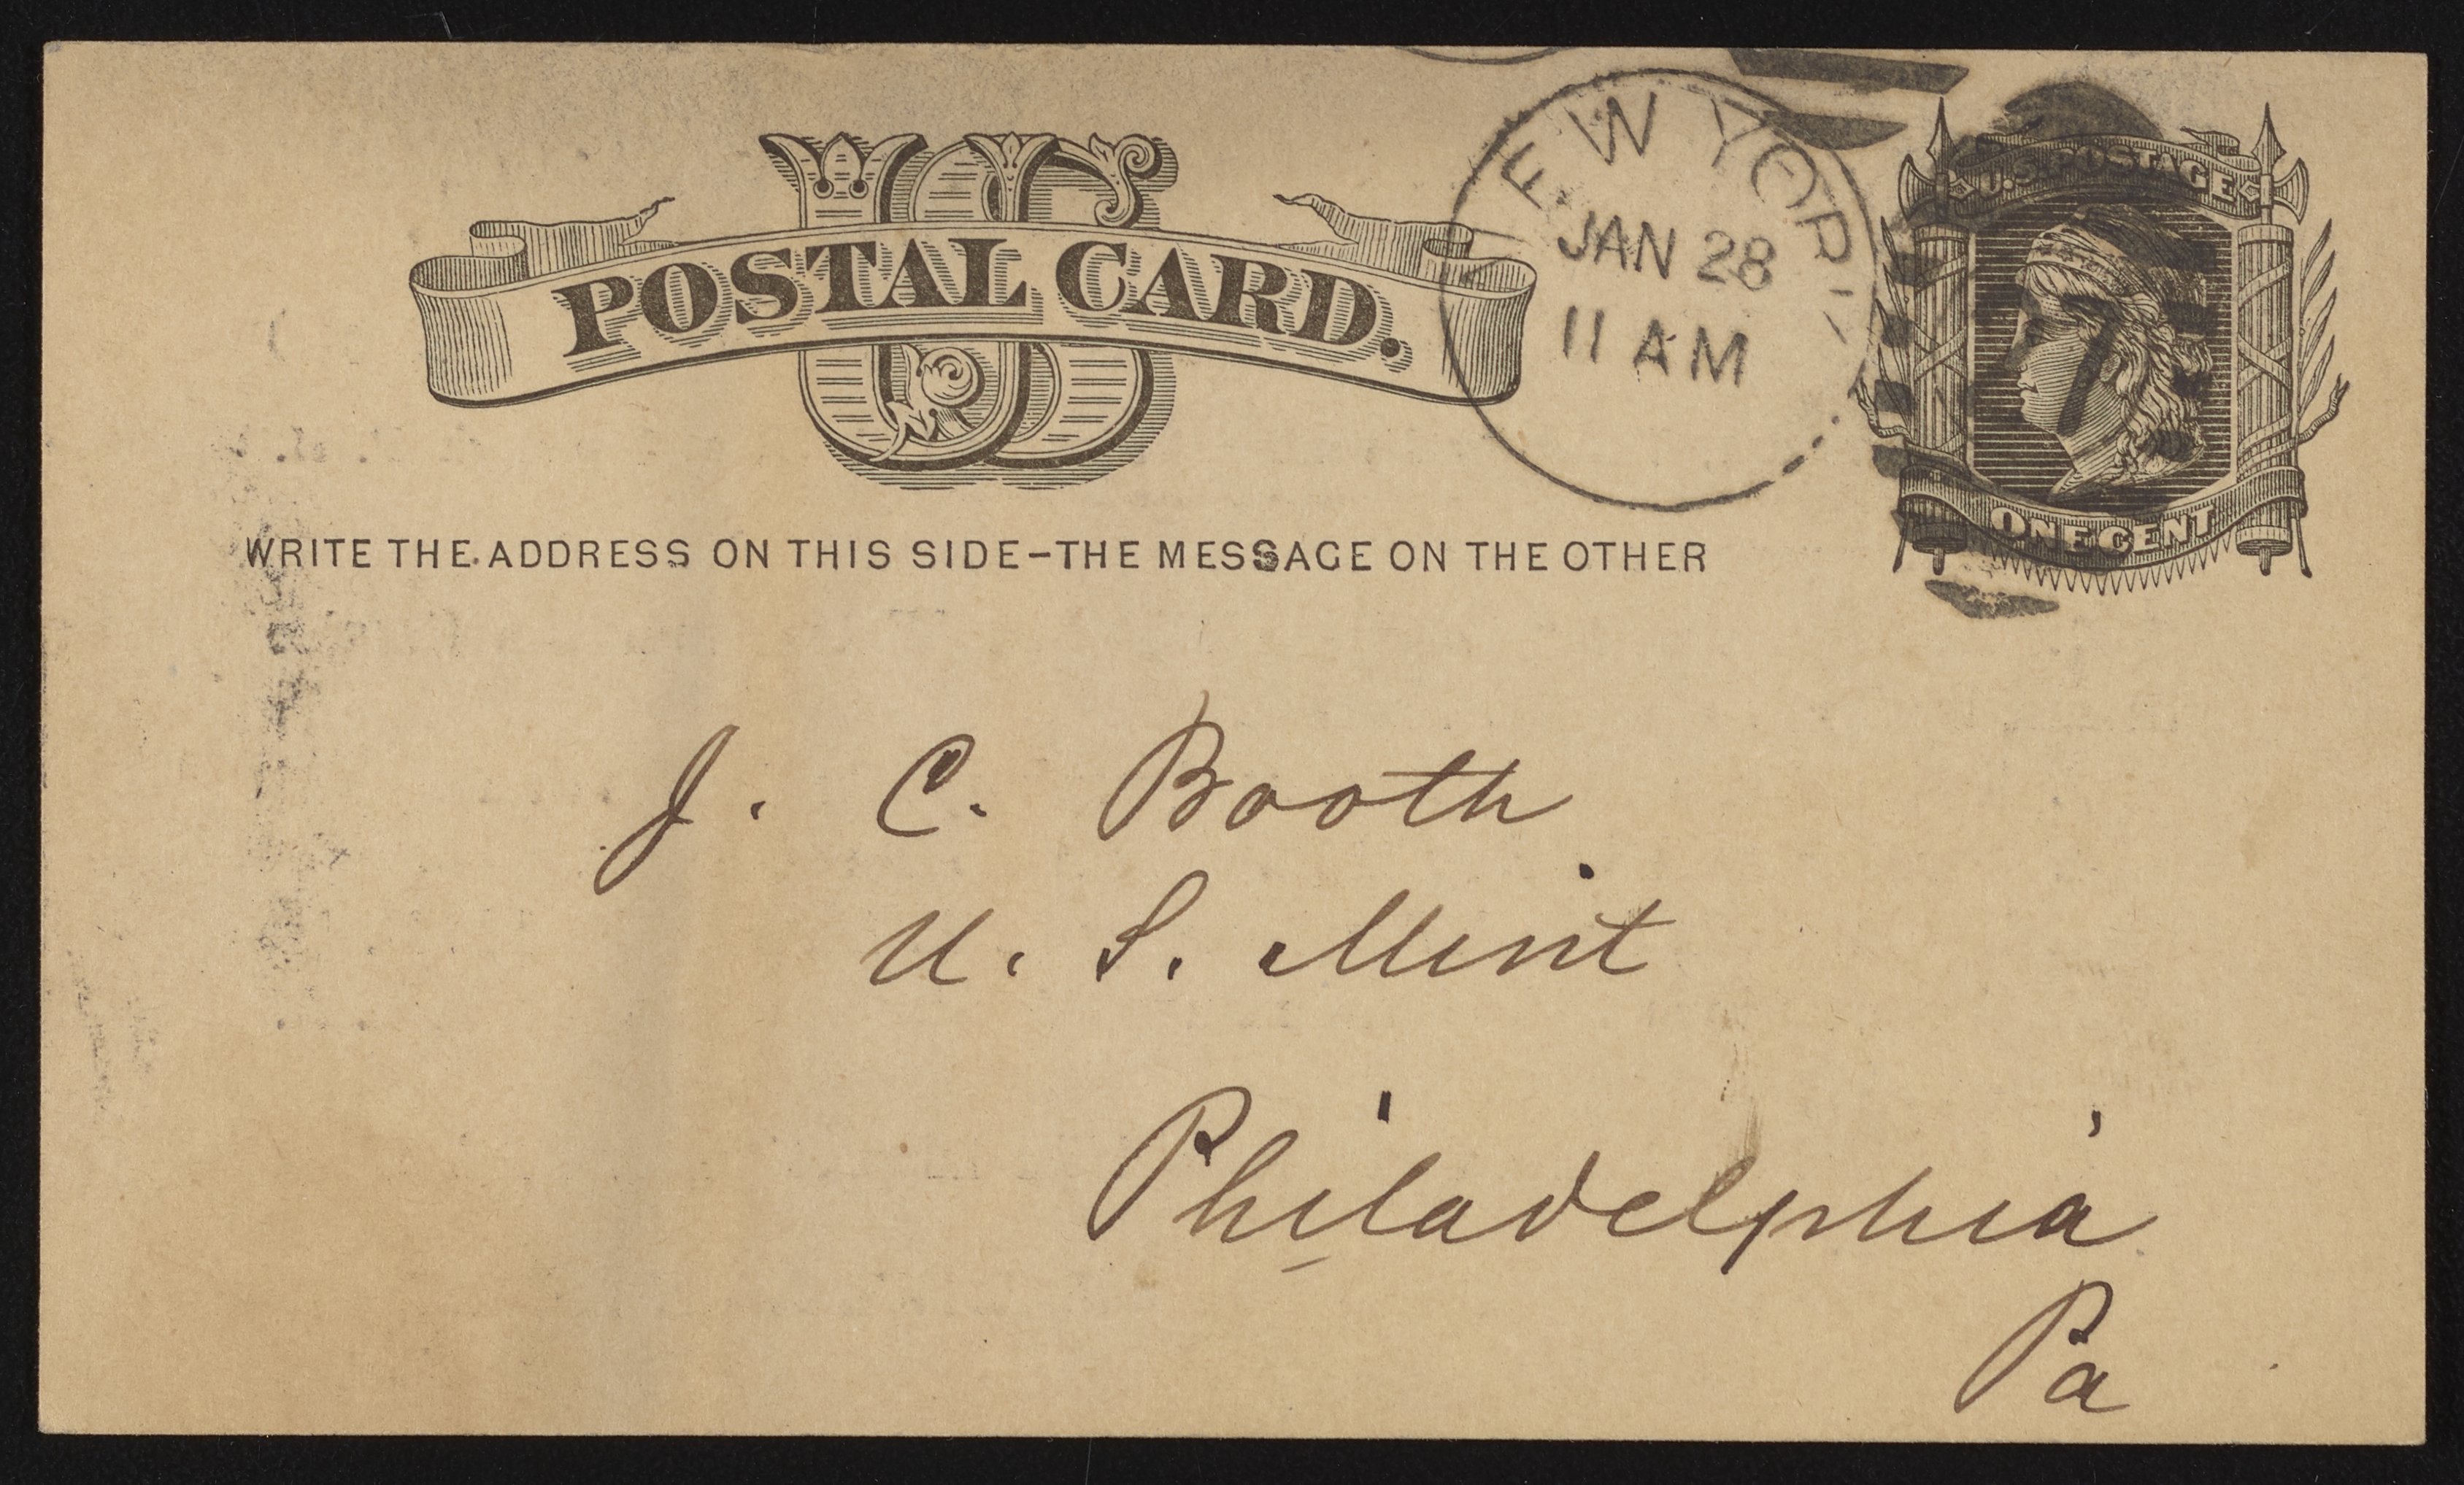 US
POSTAL CARD.
NEW YORK
JAN 28
11 AM
U.S. POSTAGE
7
ONE CENT
WRITE THE ADDRESS ON THIS SIDE-THE MESSAGE ON THE OTHER
J. C. Booth
U. S. Mint
Philadelphia
Pa